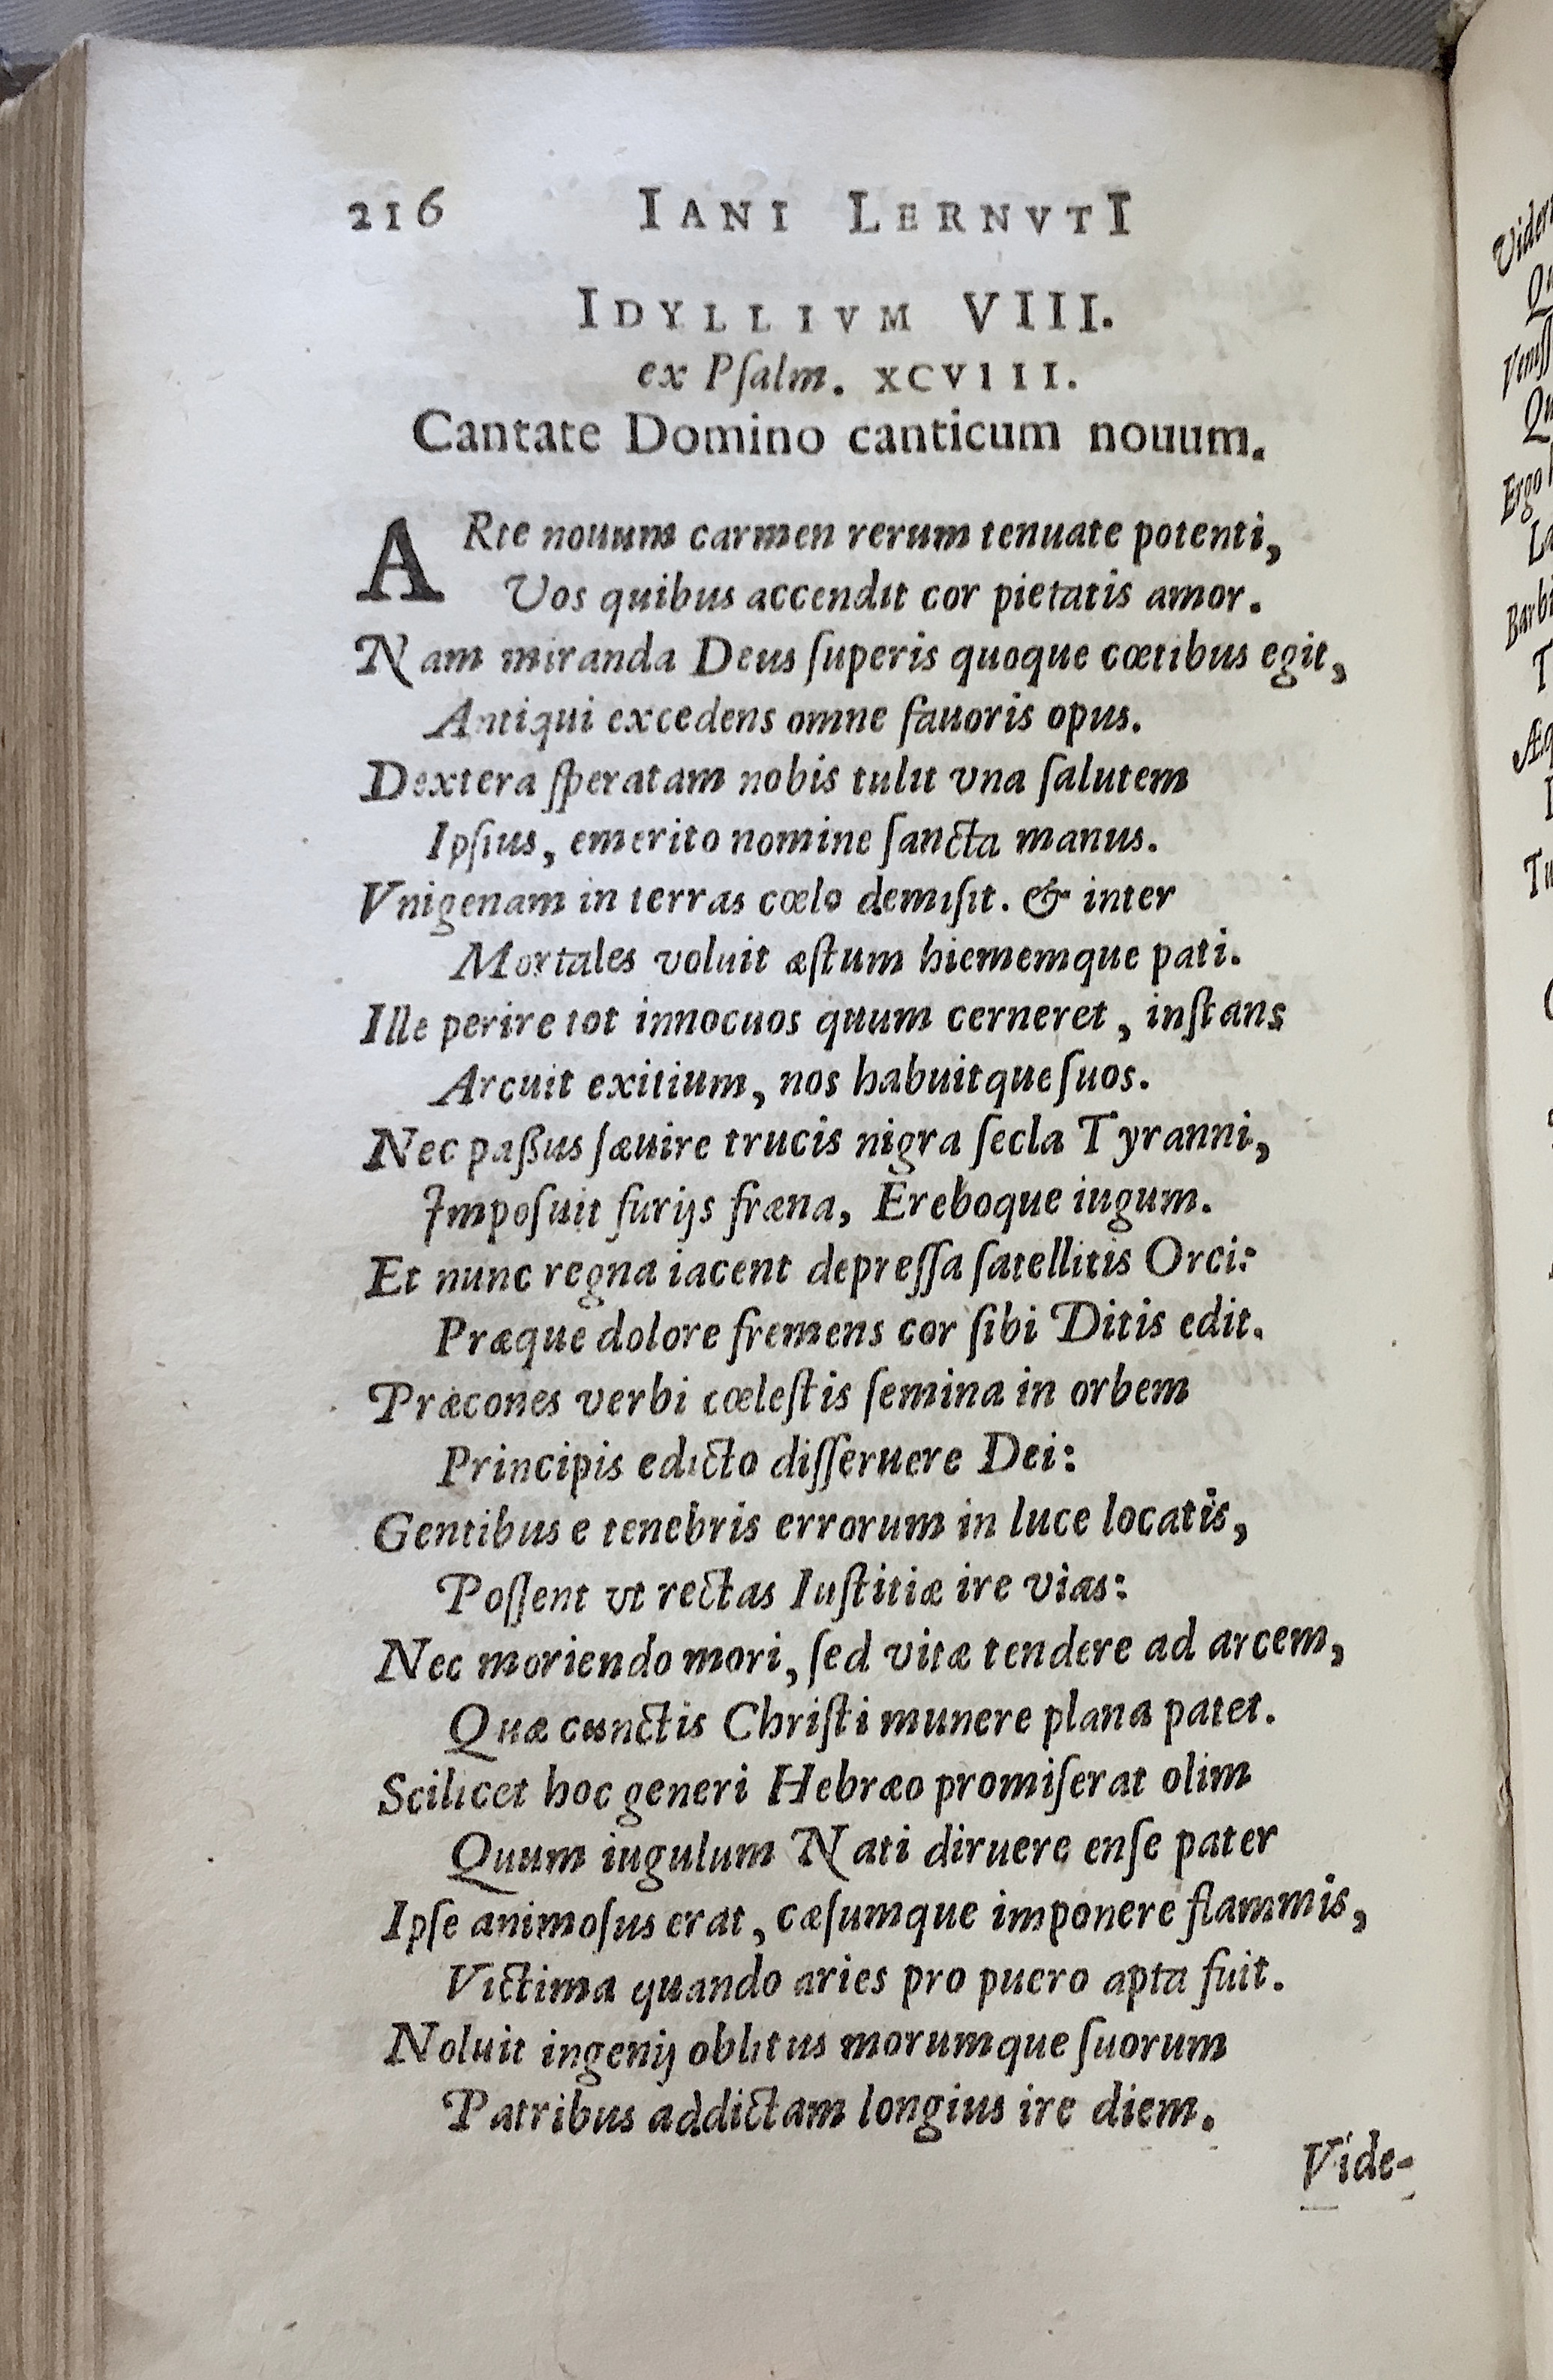 216 IANI LERNVTI
IDYLLIVM VIII.
ex Pſalm. XCVIII.
Cantate Domino canticum nouum.
ARte nouum carmen rerum tenuate potenti,
Vos quibus accendit cor pietatis amor.
Nam miranda Deus ſuperis quoque cœtibus egit,
Antiqui excedens omne fauoris opus.
Dextera ſperatam nobis tulit vna ſalutem
Ipſius, emerito nomine ſancta manus.
Vnigenam in terras cœlo demiſit. & inter
Mortales voluit æſtum hiememque pati.
Ille perire tot innocuos quum cerneret, inſtans
Arcuit exitium, nos habuitque ſuos.
Nec paßus ſæuire trucis nigra ſecla Tyranni,
Impoſuit furijs fræna, Ereboque iugum.
Et nunc regna iacent depreſſa ſatellitis Orci:
Præque dolore fremens cor ſibi Ditis edit.
Præcones verbi cœleſtis ſemina in orbem
Principis edicto diſſeruere Dei:
Gentibus e tenebris errorum in luce locatis,
Poſſent vt rectas Iuſtitiæ ire vias:
Nec moriendo mori, ſed vitæ tendere ad arcem,
Quæ cunctis Chriſti munere plana patet.
Scilicet hoc generi Hebræo promiſerat olim
Quum iugulum Nati diruere enſe pater
Ipſe animoſus erat, cæſumque imponere flammis,
Victima quando aries pro puero apta fuit.
Noluit ingenij oblitus morumque ſuorum
Patribus addictam longius ire diem.
Vide-